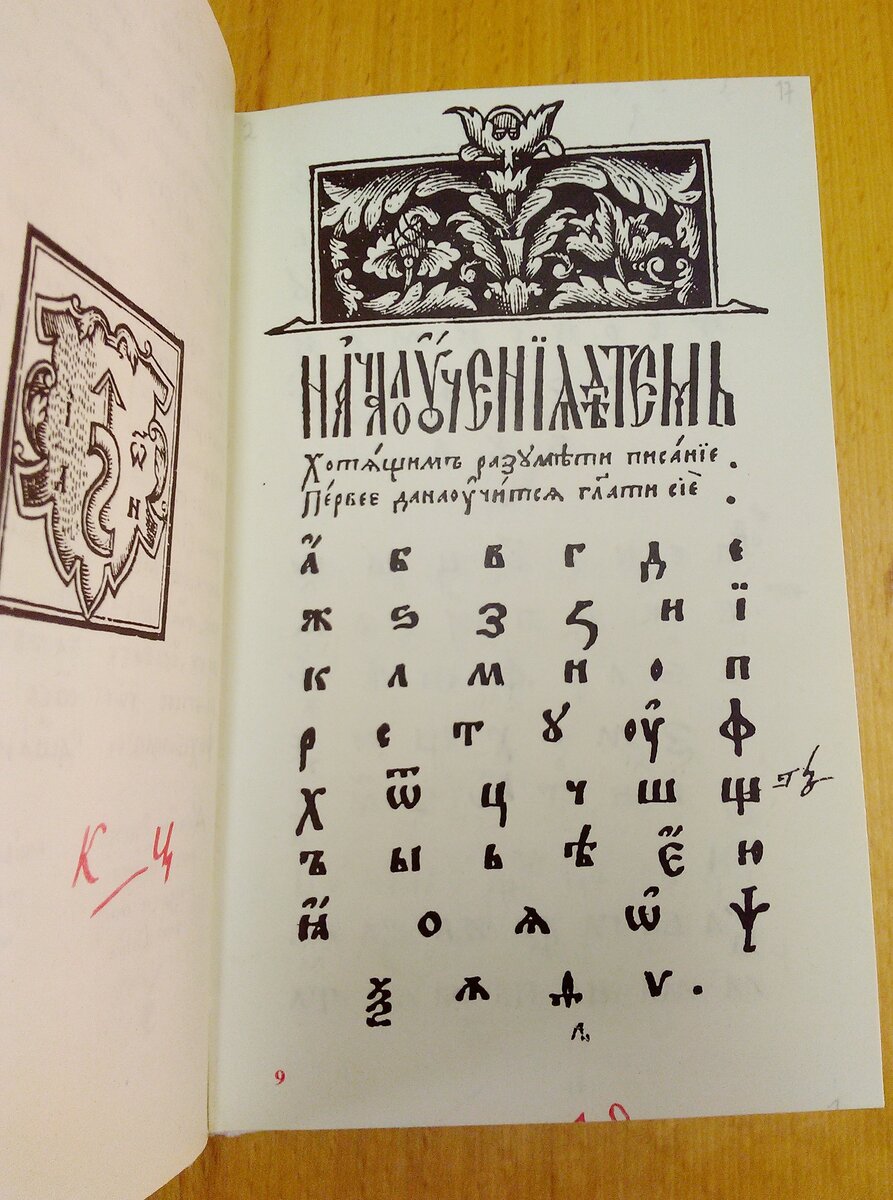 К Ц
17
НАЧАЛО ОУЧЕНЇѦ ДѢТЕМЪ
Хотѧ́щимъ разꙋмѣти писа́нїе .
Пе́рвее да наоучи́тсѧ гл҃ати сїѐ .
а҆́ б в г д є
ж ѕ з ꙁ и ї
к л м н о п
р с т ꙋ оу҆ ф
х ѿ ц ч ш щ
ъ ы ь ѣ е҆́ ю
ꙗ҆́ о ѧ ѡ҆ ѱ
ѯ ѧ ѵ .
9